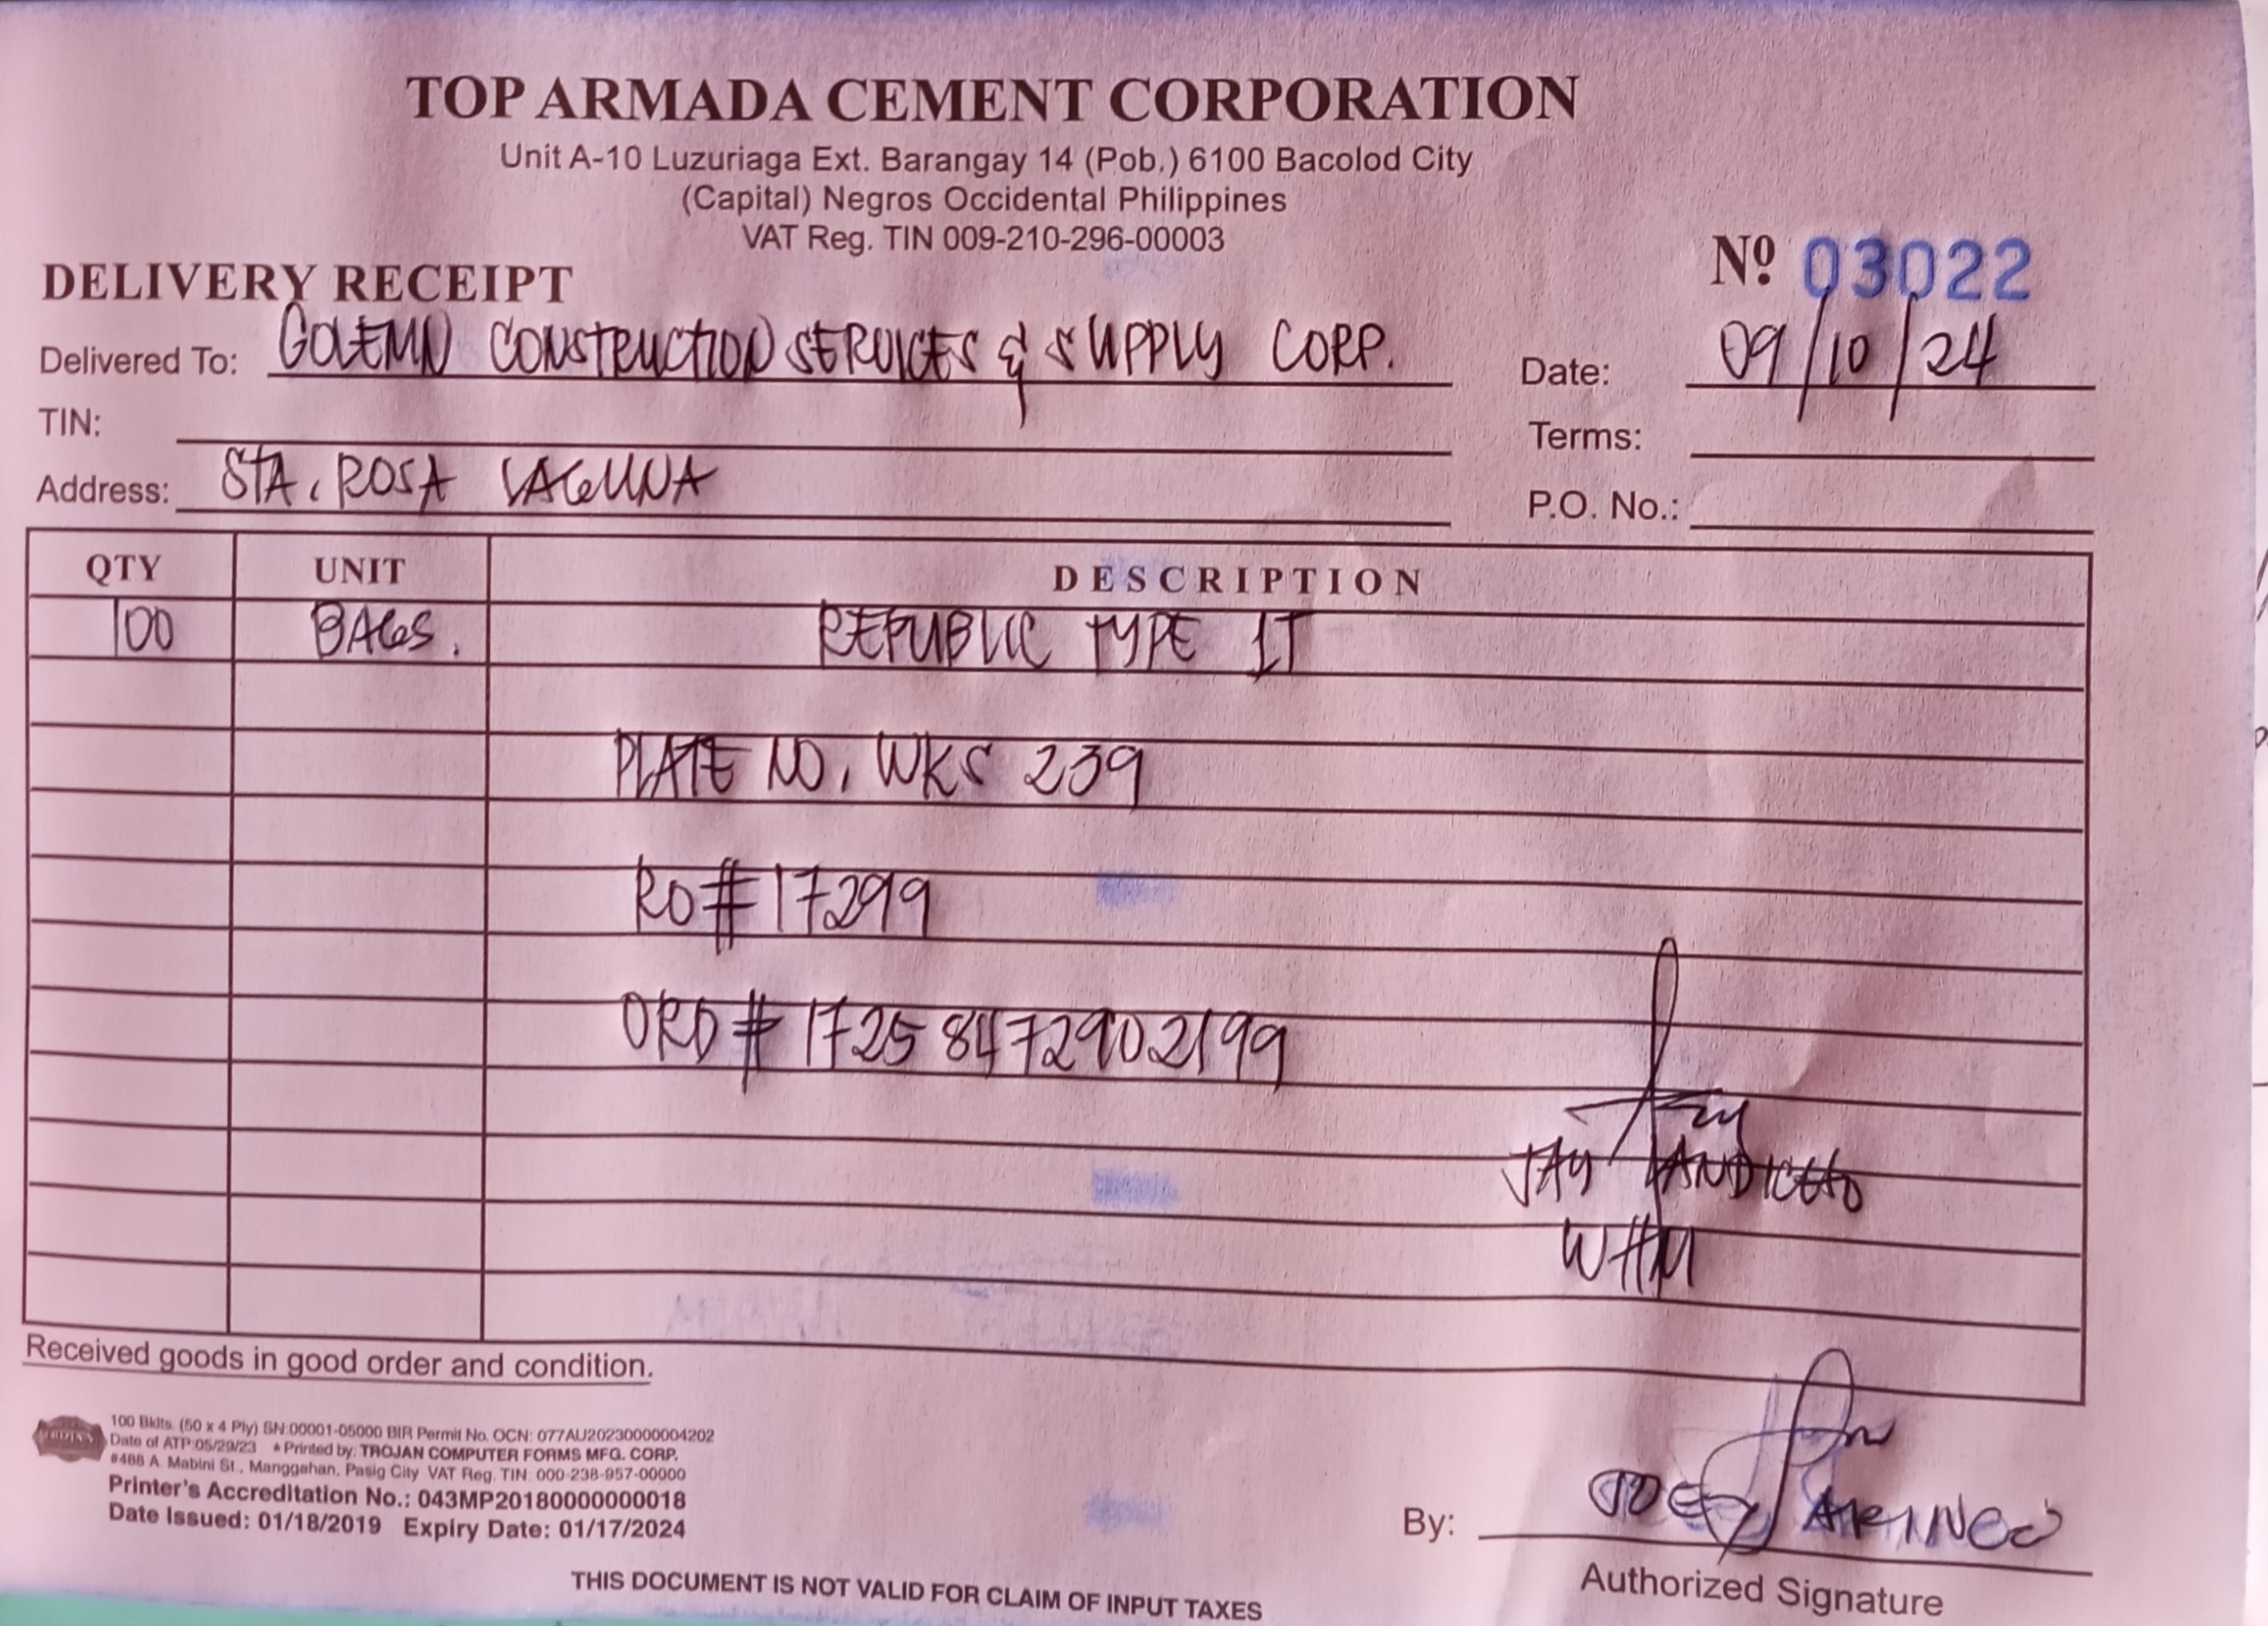 TOP ARMADA CEMENT CORPORATION
Unit A-10 Luzuriaga Ext. Barangay 14 (Pob.) 6100 Bacolod City
(Capital) Negros Occidental Philippines
VAT Reg. TIN 009-210-296-00003
DELIVERY RECEIPT
Nº 03022
Delivered To: GOLEMN CONSTRUCTION SERVICES & SUPPLY CORP.
Date: 09/10/24
TIN:
Terms:
Address: STA. ROSA LAGUNA
P.O. No.:
QTY UNIT DESCRIPTION
100 BAGS. REPUBLIC TYPE 1T
PLATE NO. WKS 239
RO# 17299
ORD# 1725 8472902199
JAY LANDICHO
WHM
Received goods in good order and condition.
100 Bklts. (50 x 4 Ply) SN:00001-05000 BIR Permit No. OCN: 077AU20230000004202
Date of ATP:05/29/23 * Printed by: TROJAN COMPUTER FORMS MFG. CORP.
#488 A. Mabini St., Manggahan, Pasig City VAT Reg. TIN: 000-238-957-00000
Printer's Accreditation No.: 043MP20180000000018
Date Issued: 01/18/2019 Expiry Date: 01/17/2024
By: JOEY ARINGO
Authorized Signature
THIS DOCUMENT IS NOT VALID FOR CLAIM OF INPUT TAXES